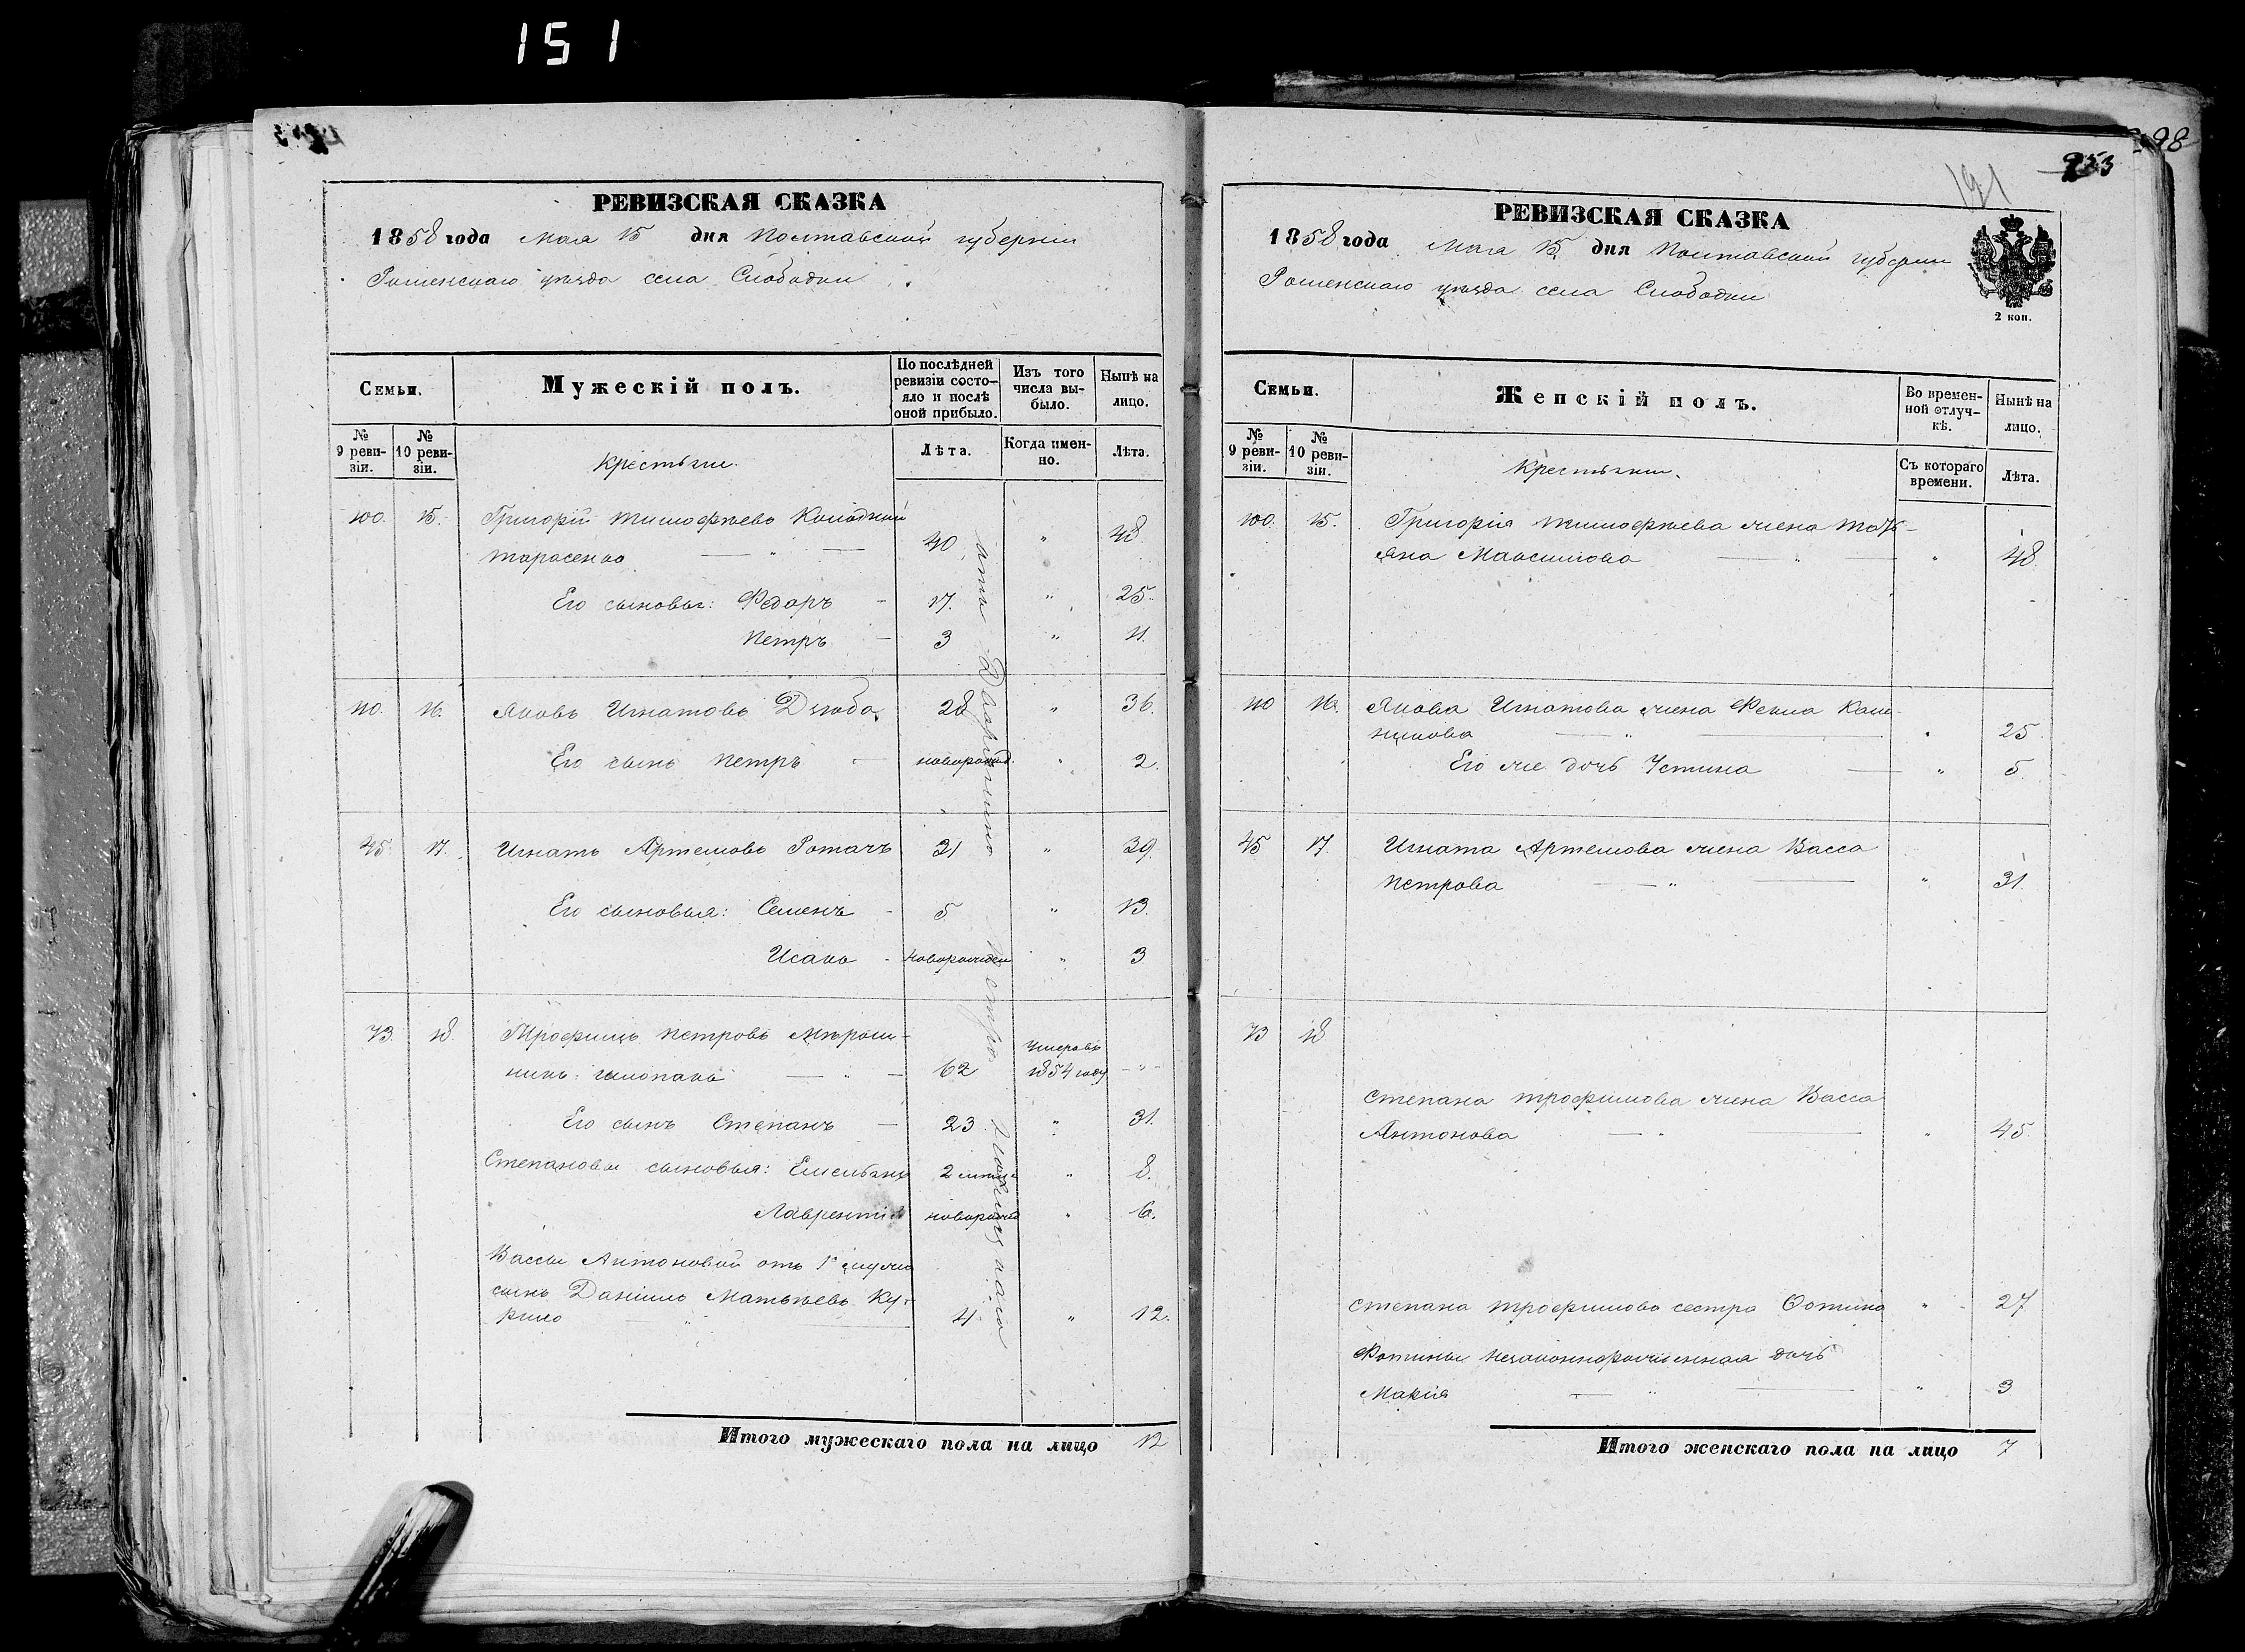 151
РЕВИЗСКАЯ СКАЗКА
1858 года Мая 15 дня Полтавской губернии
Роменскаго уѣзда села Слободки
Семьи.
Мужескій полъ.
По послѣдней ревизіи состояло и послѣ оной прибыло.
Изъ того числа выбыло.
Нынѣ на лицо.
№ 9 ревизіи.
№ 10 ревизіи.
Крестьяне.
Лѣта.
Когда именно.
Лѣта.
100. 15. Григорій Тимофѣевъ Колодній
Тарасенко — " — 40 " 48
Его сыновья: Федоръ - 17. " 25.
Петръ - 3 " 11.
110. 16. Яковъ Игнатовъ Дзюба 28 " 36
Его сынъ Петръ - новорожд. " 2.
45. 17. Игнатъ Артемовъ Ротачъ 31 " 39.
Его сыновья: Семенъ - 5 " 13.
Исакъ - новорожден " 3
73. 18. Трофимъ Петровъ Мирош-
никъ: — " — 62 Умеръ въ 1854 году - " -
Его сынъ Степанъ — 23. " 31.
Степановы сыновья: Емельянъ " 8.
Лаврентій новорожд " 6.
Вассы Антоновой отъ 1го мужа
сынъ Даніилъ Матвѣевъ Ку-
рило — " — 4 " 12.
Итого мужескаго пола на лицо 12
298
253
191
РЕВИЗСКАЯ СКАЗКА
1858 года Мая 15 дня Полтавской губернии
Роменскаго уѣзда села Слободки
2 коп.
Семьи.
Женскій полъ.
Во временной отлучкѣ.
Нынѣ на лицо.
№ 9 ревизіи.
№ 10 ревизіи.
Крестьяне.
Съ котораго времени.
Лѣта.
100. 15. Григорія Тимофѣева жена Тать-
яна Максимова — " — " 48
110 16. Якова Игнатова жена Фекла Кали-
никова — " — " 25
Его же дочь Устина — " 5.
45 17. Игната Артемова жена Васса
Петрова — " — " 31.
73 18
Степана Трофимова жена Васса
Антонова — " — " 45.
Степана Трофимова сестра Фотина " - 27
Фотины незаконнорожденная дочь
Марія — " — " 3
Итого женскаго пола на лицо 7